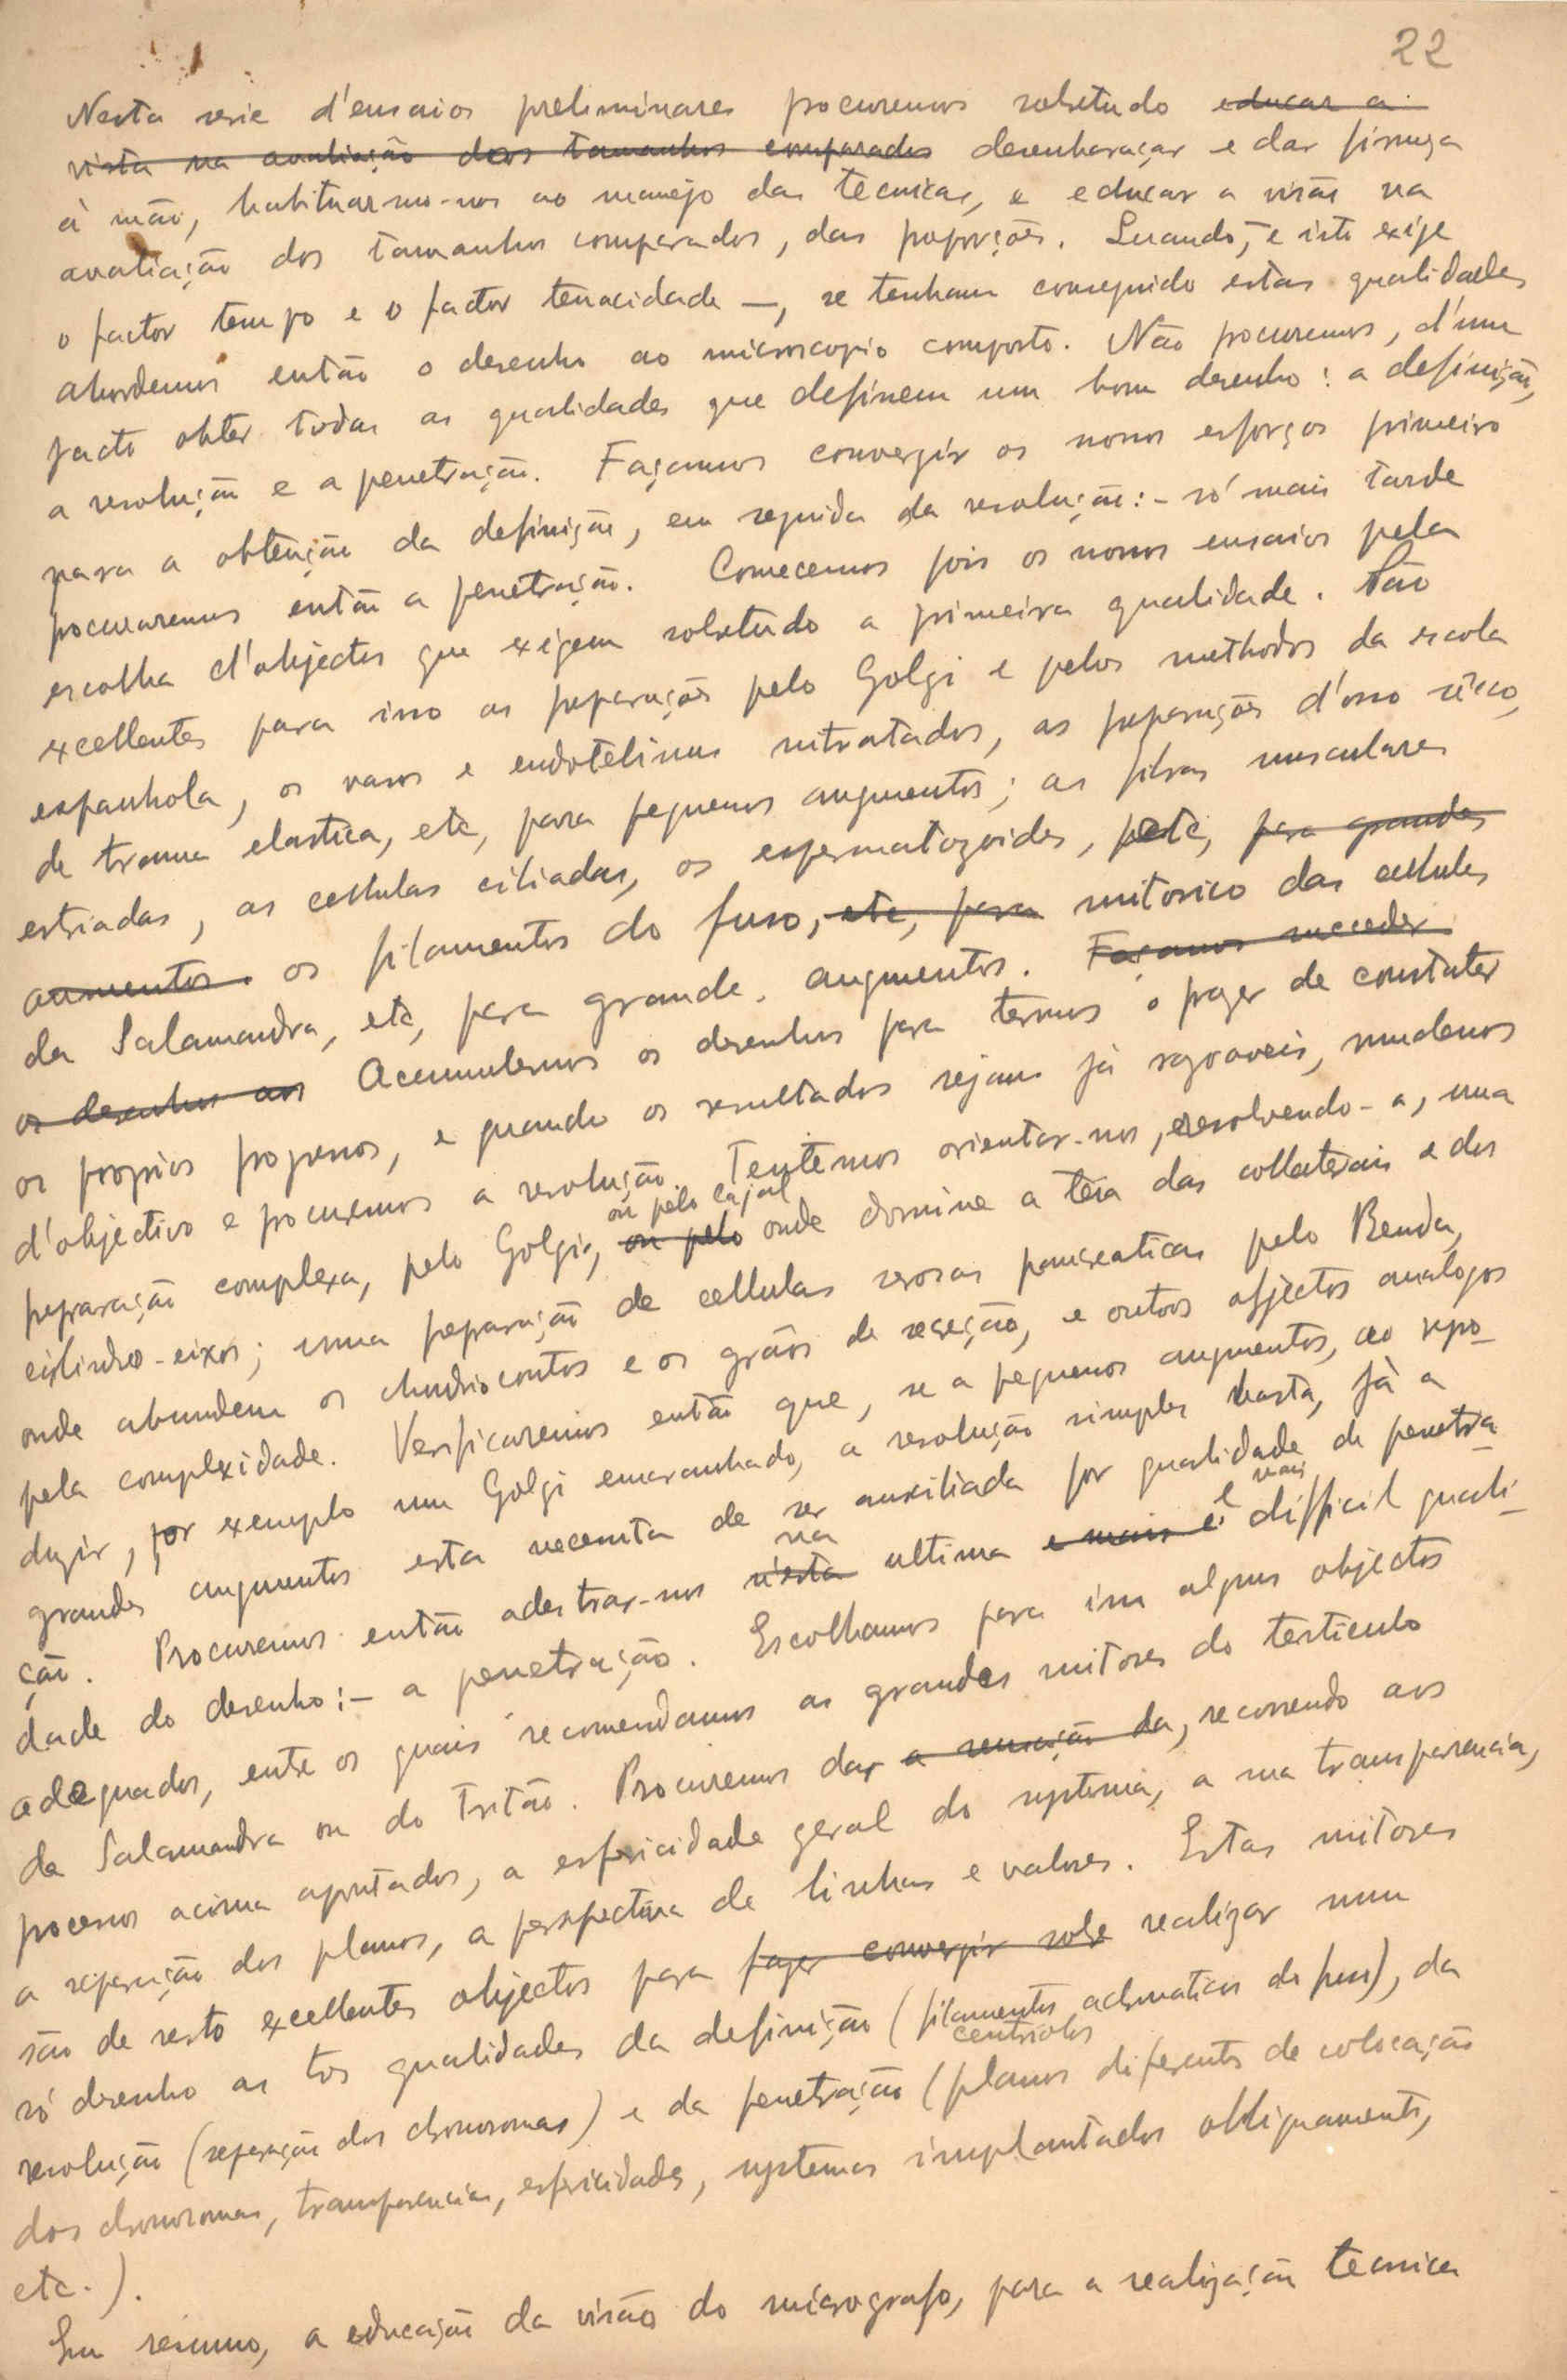 22
Nesta serie d'ensaios preliminares procuremos sobretudo educar a
vista na avaliação dos tamanhos comparados desenbaraçar e dar firmeza
á mão, habituarmo-nos ao manejo das tecnicas, e educar a visão na
avaliação dos tamanhos comparados, das proporções. Quando, – e isto exige
o factor tempo e o factor tenacidade –, se tenham conseguido estas qualidades
abordemos então o desenho ao microscopio composto. Não procuremos, d'um
jacto obter todas as qualidades que definem um bom desenho: a definição,
a resolução e a penetração. Façamos convergir os nossos esforços primeiro
para a obtenção da definição, em seguida da resolução: – só mais tarde
procuraremos então a penetração. Comecemos pois os nossos ensaios pela
escolha d'objectos que exigem sobretudo a primeira qualidade. São
excellentes para isso as preparações pelo Golgi e pelos methodos da escola
espanhola, os vasos e endotelimos nitratados, as preparações d'osso sêco,
de trama elastica, etc, para pequenos augmentos; as fibras musculares
estriadas, as cellulas ciliadas, os espermatozoides, etc, para grandes
aumentos. os filamentos do fuso, etc, para mitosico das cellulas
da Salamandra, etc, para grande. augmentos. Façamos succeder
os desenhos aos Accumulemos os desenhos para termos o prazer de constatar
os proprios progressos, e quando os resultados sejam já razoaveis, mudemos
d'objectivo e procuremos a resolução. Tentemos orientar-nos, resolvendo-a, uma
ou pelo Cajal
preparação complexa, pelo Golgi, ou pelo onde domine a teia das collaterais e dos
cilindro-eixos; uma preparação de cellulas serosas pancreaticas pelo Benda,
onde abundem os chondriocontos e os grãos de secreção, e outros objectos analogos
pela complexidade. Verificaremos então que, se a pequenos augmentos, ao repo-
duzir, por exemplo um Golgi emaranhado, a resolução simples basta, já a
grandes augmentos esta necessita de ser auxiliada por qualidade de penetra-
ção. Procuremos então adestrar-nos n'esta na ultima e mais é e mais difficil quali-
dade do desenho: – a penetração. Escolhamos para isso alguns objectos
adequados, entre os quais recomendamos as grandes mitoses do testiculo
da Salamandra ou do Tritão. Procuremos dar a sensação da, recorrendo aos
processos acima apontados, a esfericidade geral do systema, a sua transparencia,
a separação dos planos, a perspectiva de linhas e valores. Estas mitoses
são de resto excellentes objectos para fazer convergir sobre realizar num
só desenho as tres qualidades da definição (filamentos acromaticos do fuso), da
centriolos
resolução (separação dos chromosomas) e da penetração (planos diferentes de colocação
dos chromosomas, transparencias, esfericidades, systemas implantados obliquamente,
etc.).
Em resumo, a educação da visão do micrografo, para a realização tecnica